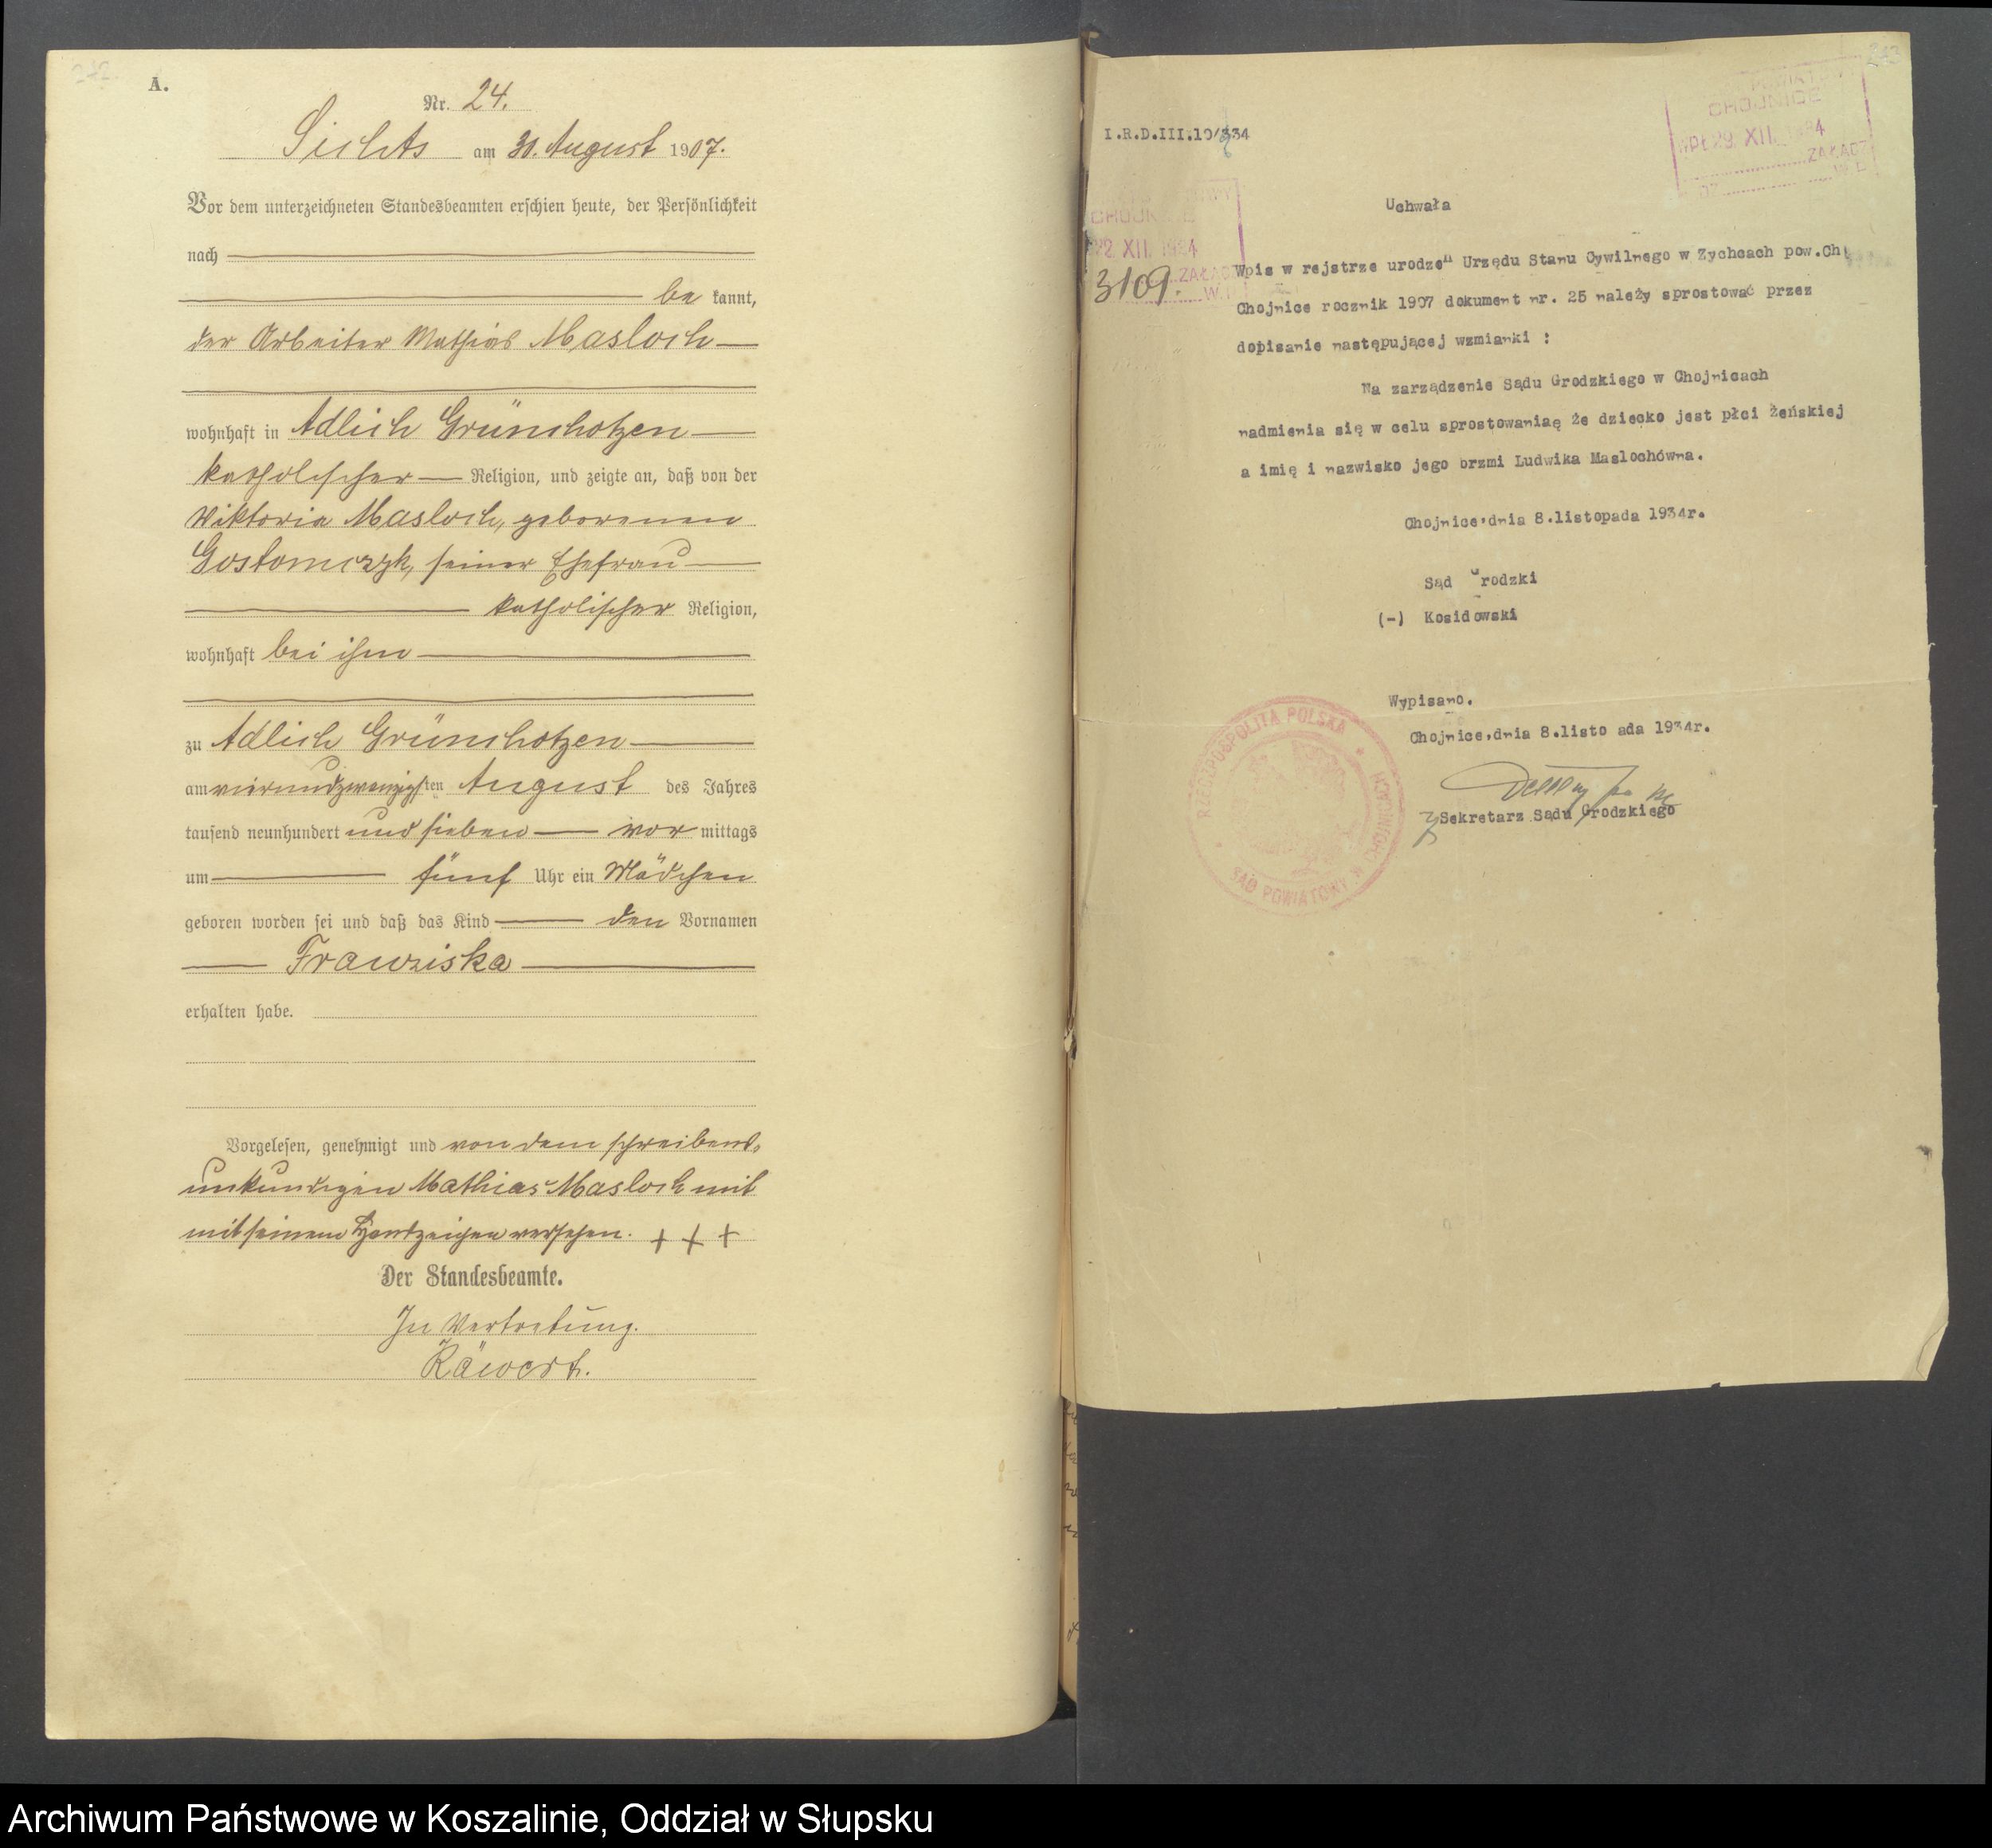 A.
Nr. 24.
Sichts am 30. August 1907.
Vor dem unterzeichneten Standesbeamten erschien heute, der Persönlichkeit
nach
be kannt,
der Arbeiter Mathias Masloch
wohnhaft in Adlich Grünchotzen
katholischer Religion, und zeigte an, daß von der
Wiktoria Masloch, geborenen
Gostomczyk, seiner Ehefrau
katholischer Religion,
wohnhaft bei ihm
zu Adlich Grünchotzen
am vierundzwanzigsten August des Jahres
tausend neunhundert und sieben vor mittags
um fünf Uhr ein Mädchen
geboren worden sei und daß das Kind den Vornamen
Franziska
erhalten habe.
Vorgelesen, genehmigt und von dem schreibens-
unkundigen Mathias Masloch mit
mit seinem Handzeichen versehen. + + +
Der Standesbeamte.
In Vertretung.
Räwert.
I.R.D.III.10/334
CHOJNICE
WPŁ 29. XII. 1934
ZAŁĄCZ
CHOJNICE
22. XII. 1934
3109. ZAŁĄCZ
Uchwała
Wpis w rejstrze urodzeń Urzędu Stanu Cywilnego w Zychcach pow.Ch
Chojnice rocznik 1907 dokument nr. 25 należy sprostować przez
dopisanie następującej wzmianki :
Na zarządzenie Sądu Grodzkiego w Chojnicach
nadmienia się w celu sprostowaniaę że dziecko jest płci żeńskiej
a imię i nazwisko jego brzmi Ludwika Maslochówna.
Chojnice,dnia 8.listopada 1934r.
Sąd Grodzki
(-) Kosidowski
Wypisano.
Chojnice,dnia 8.listo ada 1934r.
Sekretarz Sądu Grodzkiego
RZECZPOSPOLITA POLSKA * SĄD POWIATOWY W CHOJNICACH *
Archiwum Państwowe w Koszalinie, Oddział w Słupsku